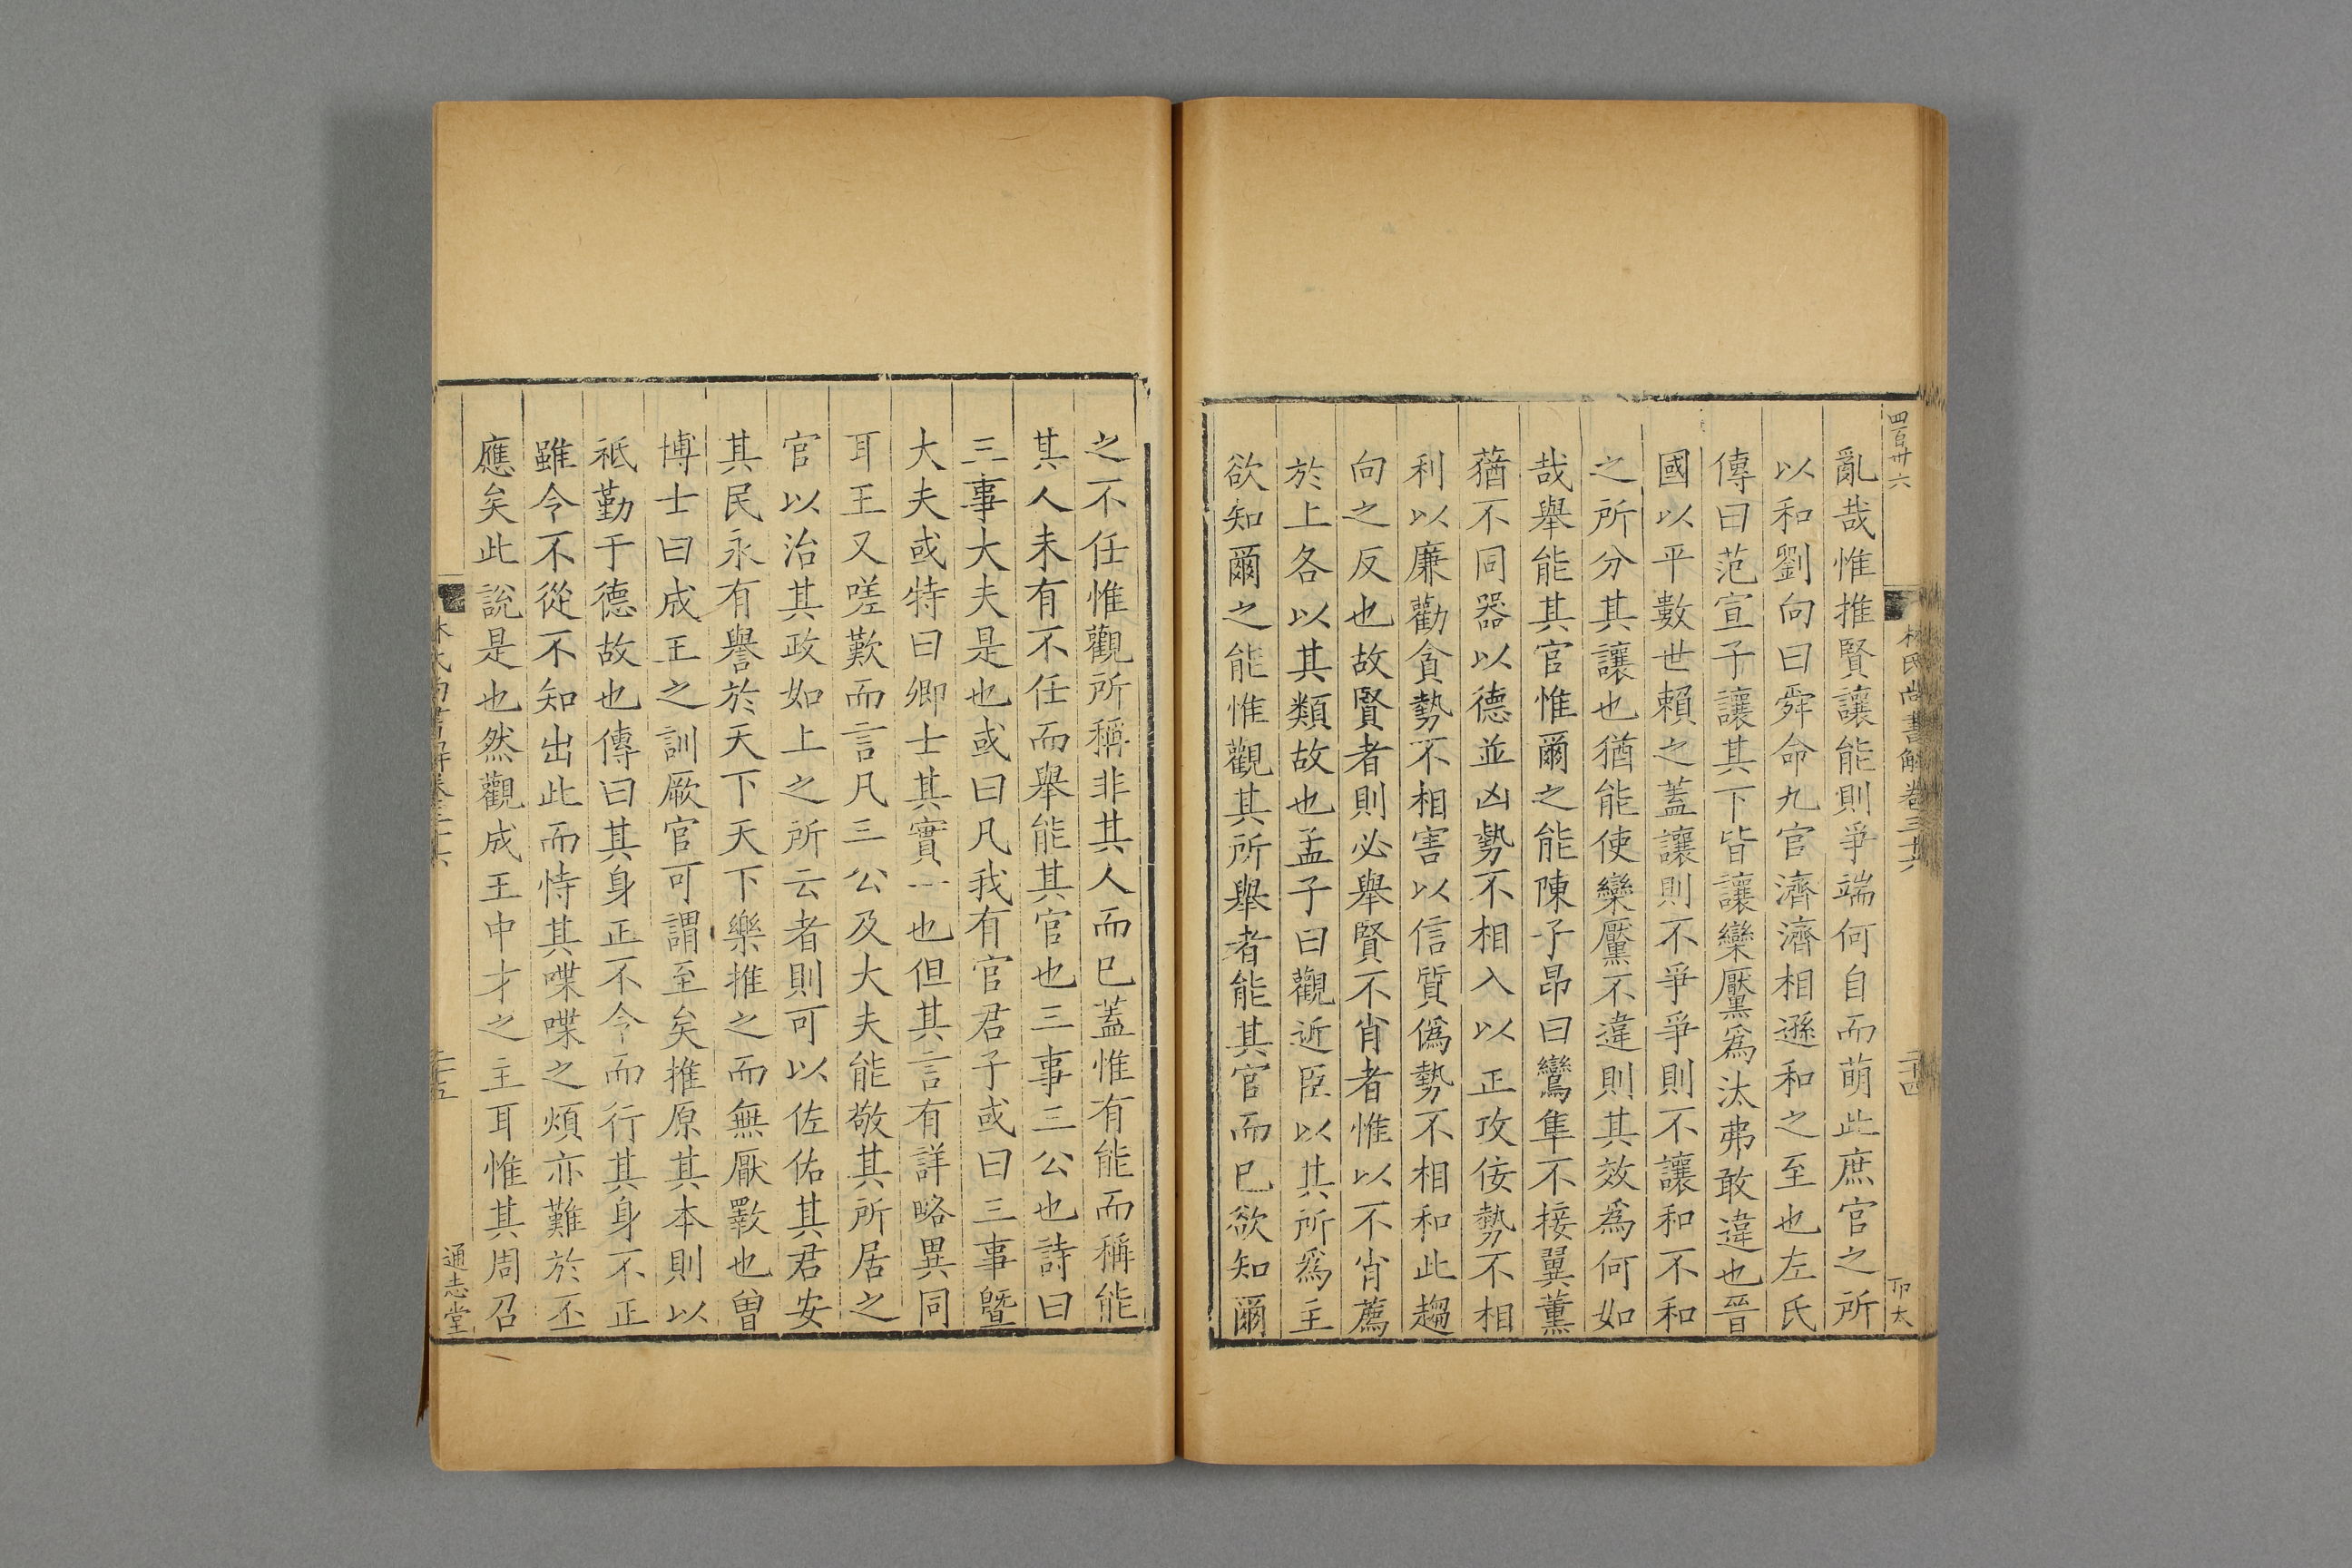 四百卅六
林氏尚書解卷三十六
二十四
亂哉惟推賢讓能則爭端何自而萌此庶官之所
以和劉向曰舜命九官濟濟相遜和之至也左氏
傳曰范宣子讓其下皆讓欒黶爲汰弗敢違也晉
國以平數世賴之蓋讓則不爭爭則不讓和不和
之所分其讓也猶能使欒黶不違則其效爲何如
哉舉能其官惟爾之能陳子昂曰鸞隼不接翼薰
蕕不同器以德並凶勢不相入以正攻佞勢不相
利以廉勸貪勢不相害以信質僞勢不相和此趨
向之反也故賢者則必舉賢不肖者惟以不肖薦
於上各以其類故也孟子曰觀近臣以其所爲主
欲知爾之能惟觀其所舉者能其官而已欲知爾
之不任惟觀所稱非其人而已蓋惟有能而稱能
其人未有不任而舉能其官也三事三公也詩曰
三事大夫是也或曰凡我有官君子或曰三事曁
大夫或特曰卿士其實一也但其言有詳略異同
耳王又嗟歎而言凡三公及大夫能敬其所居之
官以治其政如上之所云者則可以佐佑其君安
其民永有譽於天下天下樂推之而無厭斁也曾
博士曰成王之訓厥官可謂至矣推原其本則以
祗勤于德故也傳曰其身正不令而行其身不正
雖令不從不知出此而恃其喋喋之煩亦難於丕
應矣此說是也然觀成王中才之主耳惟其周召
二十五
通志堂